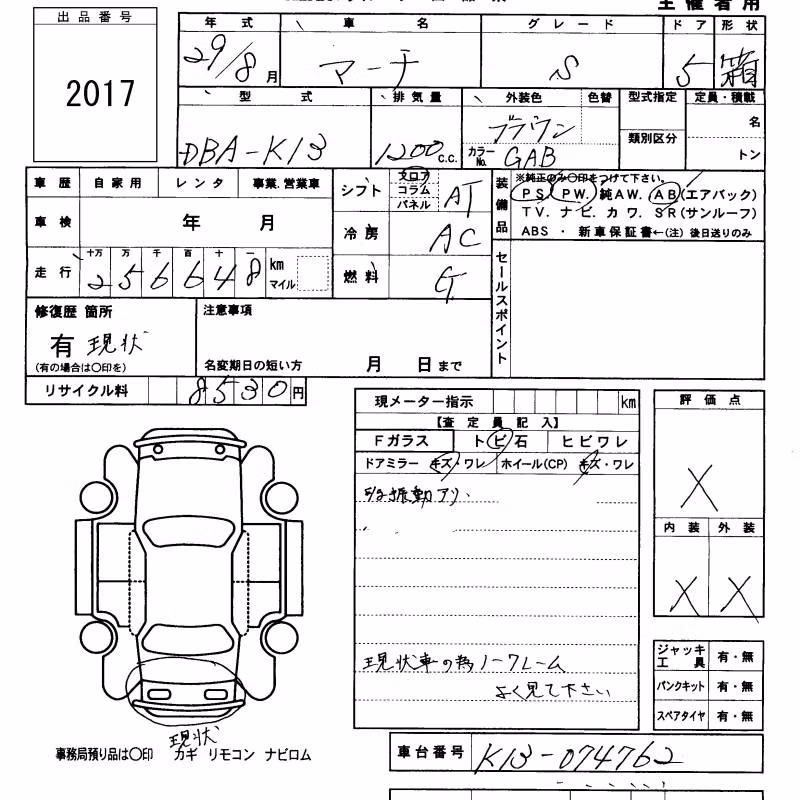 主催者用
出品番号
2017
年式 車名 グレード ドア 形状
29/8月 マーチ S 5 箱
型式 排気量 外装色 色替 型式指定 定員・積載
DBA-K13 1200 c.c. ブラウン 類別区分 名
カラーNo. GAB トン
車歴 自家用 レンタ 事業.営業車
車検 年 月
走行 十万 万 千 百 十 一
256648 km マイル
シフト フロア コラム パネル AT
冷房 AC
燃料 G
装備品
※純正のみ〇印をつけて下さい。
PS PW. 純AW. AB(エアバック)
TV. ナビ. カワ. SR(サンルーフ)
ABS ・ 新車保証書←(注) 後日送りのみ
セールスポイント
修復歴 箇所
有 現状
(有の場合は〇印を)
注意事項
名変期日の短い方 月 日まで
リサイクル料 8530円
現メーター指示 km
【査定員記入】
Fガラス トビ石 ヒビワレ
ドアミラー キズ・ワレ ホイール(CP) キズ・ワレ
振動アリ
現状車の為ノークレーム
よく見て下さい
評価点
X
内装 外装
X X
ジャッキ工具 有・無
パンクキット 有・無
スペアタイヤ 有・無
現状
事務局預り品は〇印 カギ リモコン ナビロム
車台番号 K13-074762